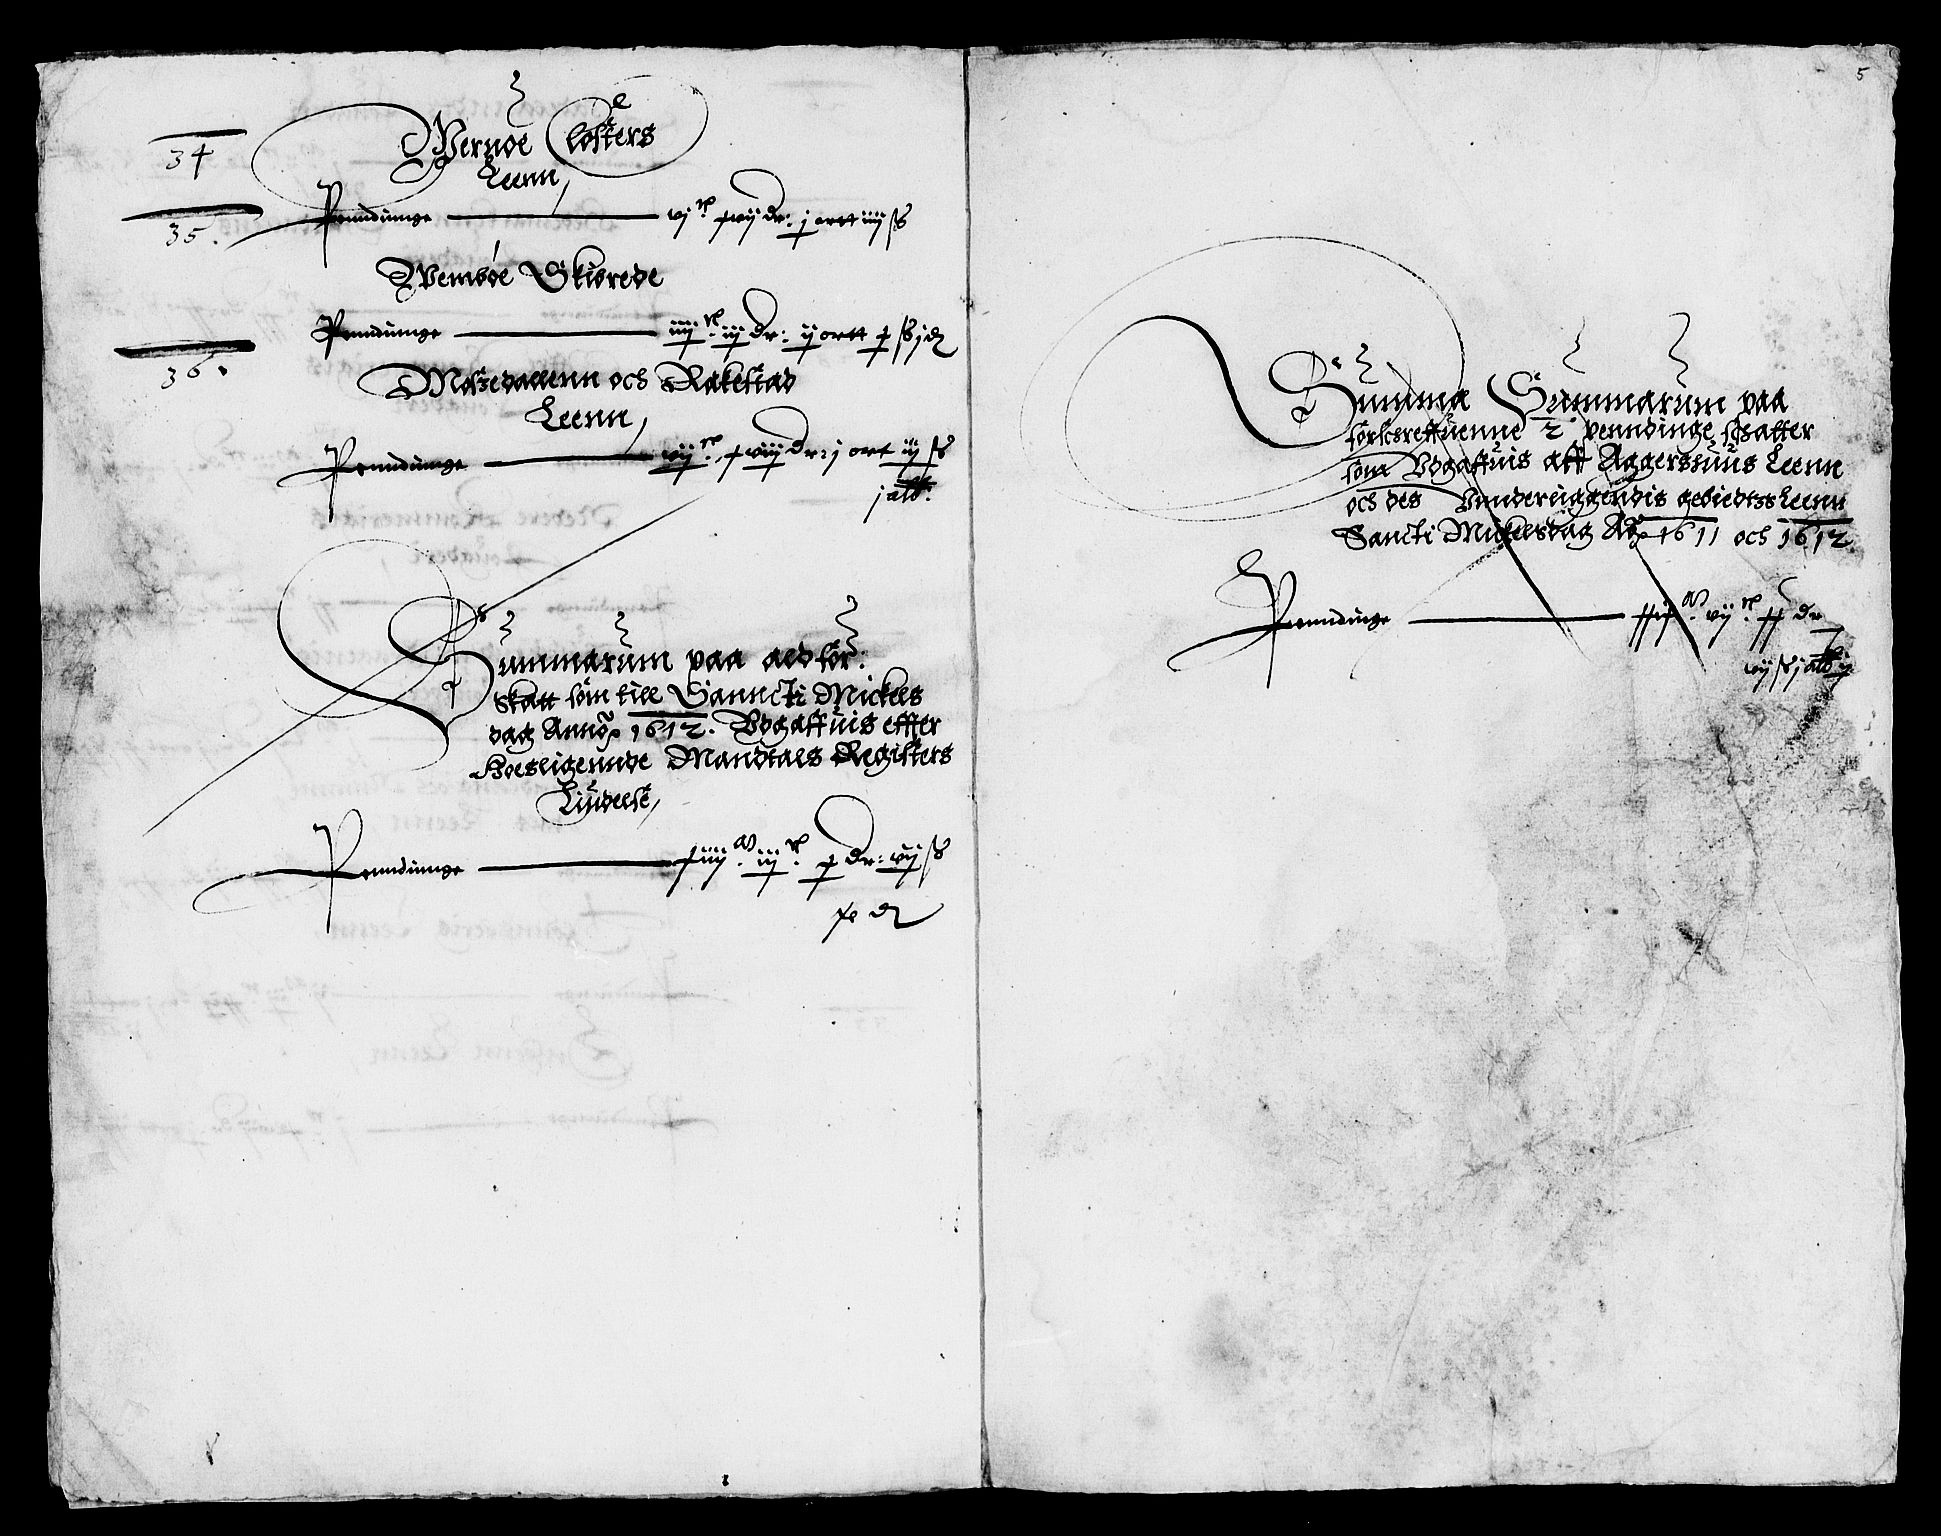 34
Wernøe Closters
Leenn
35.
Penndinnge vj c xvij dr: j ortt iiij ß
Wembøe Skibrede
Penndinnge iiij c iij dr: ij ortt x ß j d
36.
Mossedallenn och Rakestad
Leenn
Penndinnge vij c xviij dr: j ort iij ß
j alb:
Summarum paa all for:
Skatt som till Sanncti Mickels
dag Anno 1612. Udgaffuis effter
Hosligennde Mandtals Registers
Liudelse
Penndinnge xiiij m iij c x dr: vij ß
d
5
Summa Summarum paa
forscreffuenne 2 penndinge schatter
som Udgaffuis aff Aggershuus Leenn
och des Underliggendis gebiedtss Leenn
Sancti Mickelsdag Ao 1611 och 1612.
Penndinge m vij c xx dr
vij ß j alb